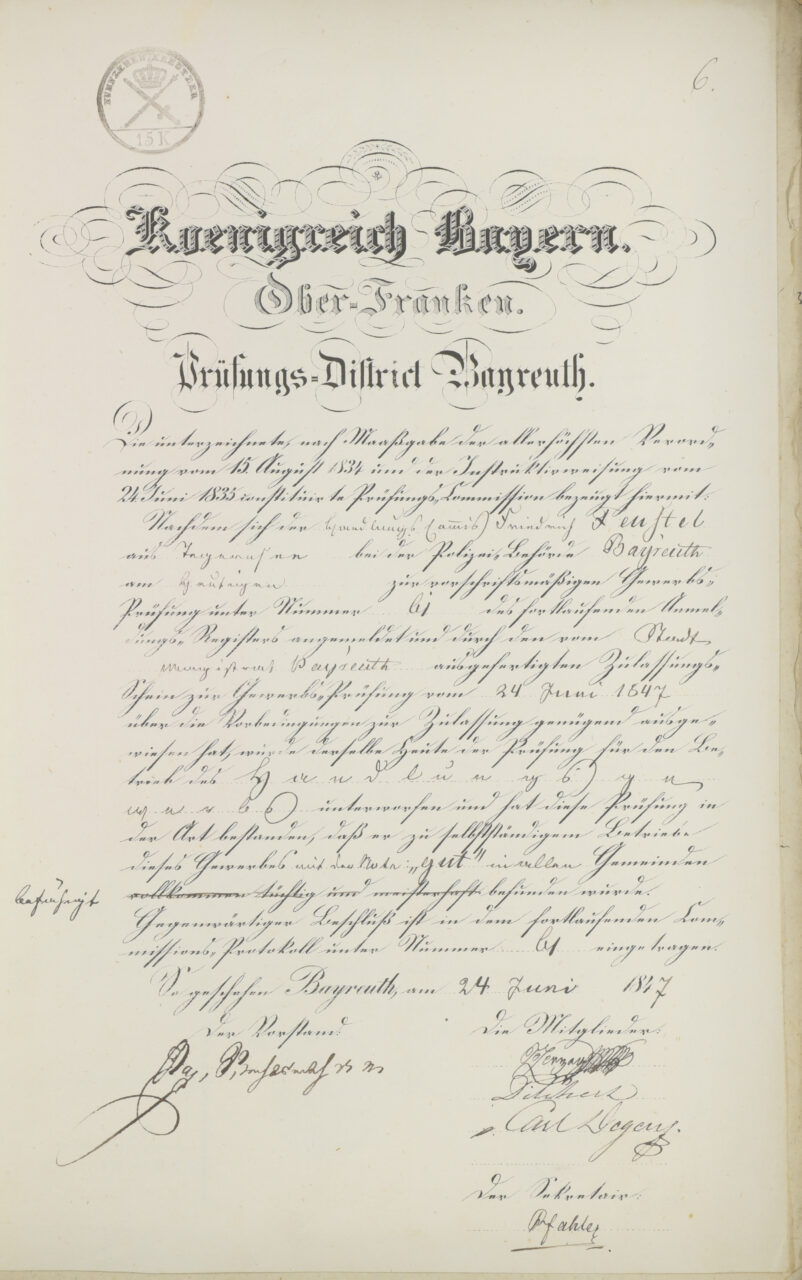 6.
15 K
Koenigreich Bayern.
Ober-Franken.
Prüfungs-District Bayreuth.
Die unterzeichnete, nach Maaßgabe der allerhöchsten Verord-
nung vom 15. August 1834 und der Instruktivweisung vom
24 Juni 1835 constituirte Prüfungs-Commission bezeugt hiermit:
Nachdem sich der Handlungs Commis Friedrich Feustel
aus Tegernsee bei der Polizei-Behörde Bayreuth
am heutigen zur vorschriftsmäßigen Gewerbs-
Prüfung unter Nummer 61 des fortlaufenden Anmel-
dungs-Registers angemeldet und durch den vom Stadt
magistrat Bayreuth ausgefertigten Zulassungs-
Schein zur Gewerbs-Prüfung vom 24 Juni 1847
über die Vorbedingungen zur Zulassung genügend ausge-
wiesen hat, wurde derselbe heute der Prüfung für den Be-
trieb des Handlungsge
werbes unterworfen und hat diese Prüfung in
der Art bestanden, daß er zu selbstständigem Betriebe
dieses Gewerbes mit der Note: „gut" in allen Gemeinden
befähigt
vollkommen tüchtig und meisterhaft befunden wurde.
Gegenwärtiger Beschluß ist in dem fortlaufenden Com-
missions-Protokoll unter Nummer 61 eingetragen.
So geschehen Bayreuth, am 24 Juni 1847
Der Vorstand:
Die Mitglieder:
Carl
Der Sekretair:
Pfahler